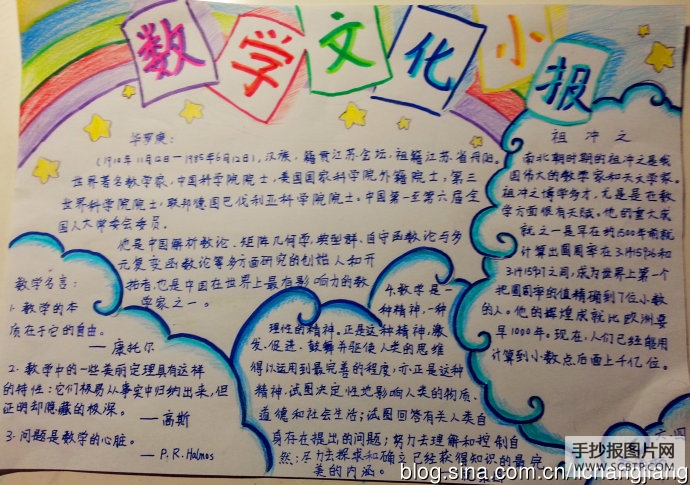 数学文化小报
华罗庚：
（1910年11月12日—1985年6月12日），汉族，籍贯江苏金坛，祖籍江苏省丹阳。
世界著名数学家，中国科学院院士，美国国家科学院外籍院士，第三
世界科学院院士，联邦德国巴伐利亚科学院院士。中国第一至第六届全
国人大常委会委员。
他是中国解析数论、矩阵几何学、典型群、自守函数论与多
元复变函数论等多方面研究的创始人和开
拓者，也是中国在世界上最有影响力的数
学家之一。
祖冲之
南北朝时期的祖冲之是我
国伟大的数学家和天文学家。
祖冲之博学多才，尤其是在数
学方面很有天赋。他的重大成
就之一是早在约1500年前就
计算出圆周率在3.1415926和
3.1415927之间，成为世界上第一个
把圆周率的值精确到7位小数
的人。他的辉煌成就比欧洲要
早1000年。现在，人们已经能用
计算到小数点后面上千亿位。
数学名言：
1. 数学的本
质在于它的自由。
— 康托尔
2. 数学中的一些美丽定理具有这样
的特性：它们极易从事实中归纳出来，但
证明却隐藏的极深。
— 高斯
3. 问题是数学的心脏。
— P.R.Halmos
4. 数学是一
种精神，一种
理性的精神。正是这种精神，激
发、促进、鼓舞并驱使人类的思维
得以运用到最完善的程度，亦正是这种
精神，试图决定性地影响人类的物质、
道德和社会生活；试图回答有关人类自
身存在提出的问题；努力去理解和控制自
然；尽力去探求和确立已经获得知识的最完
美的内涵。
手抄报图片网
WWW.SCBTP.COM
blog.sina.com.cn/lichangjiang